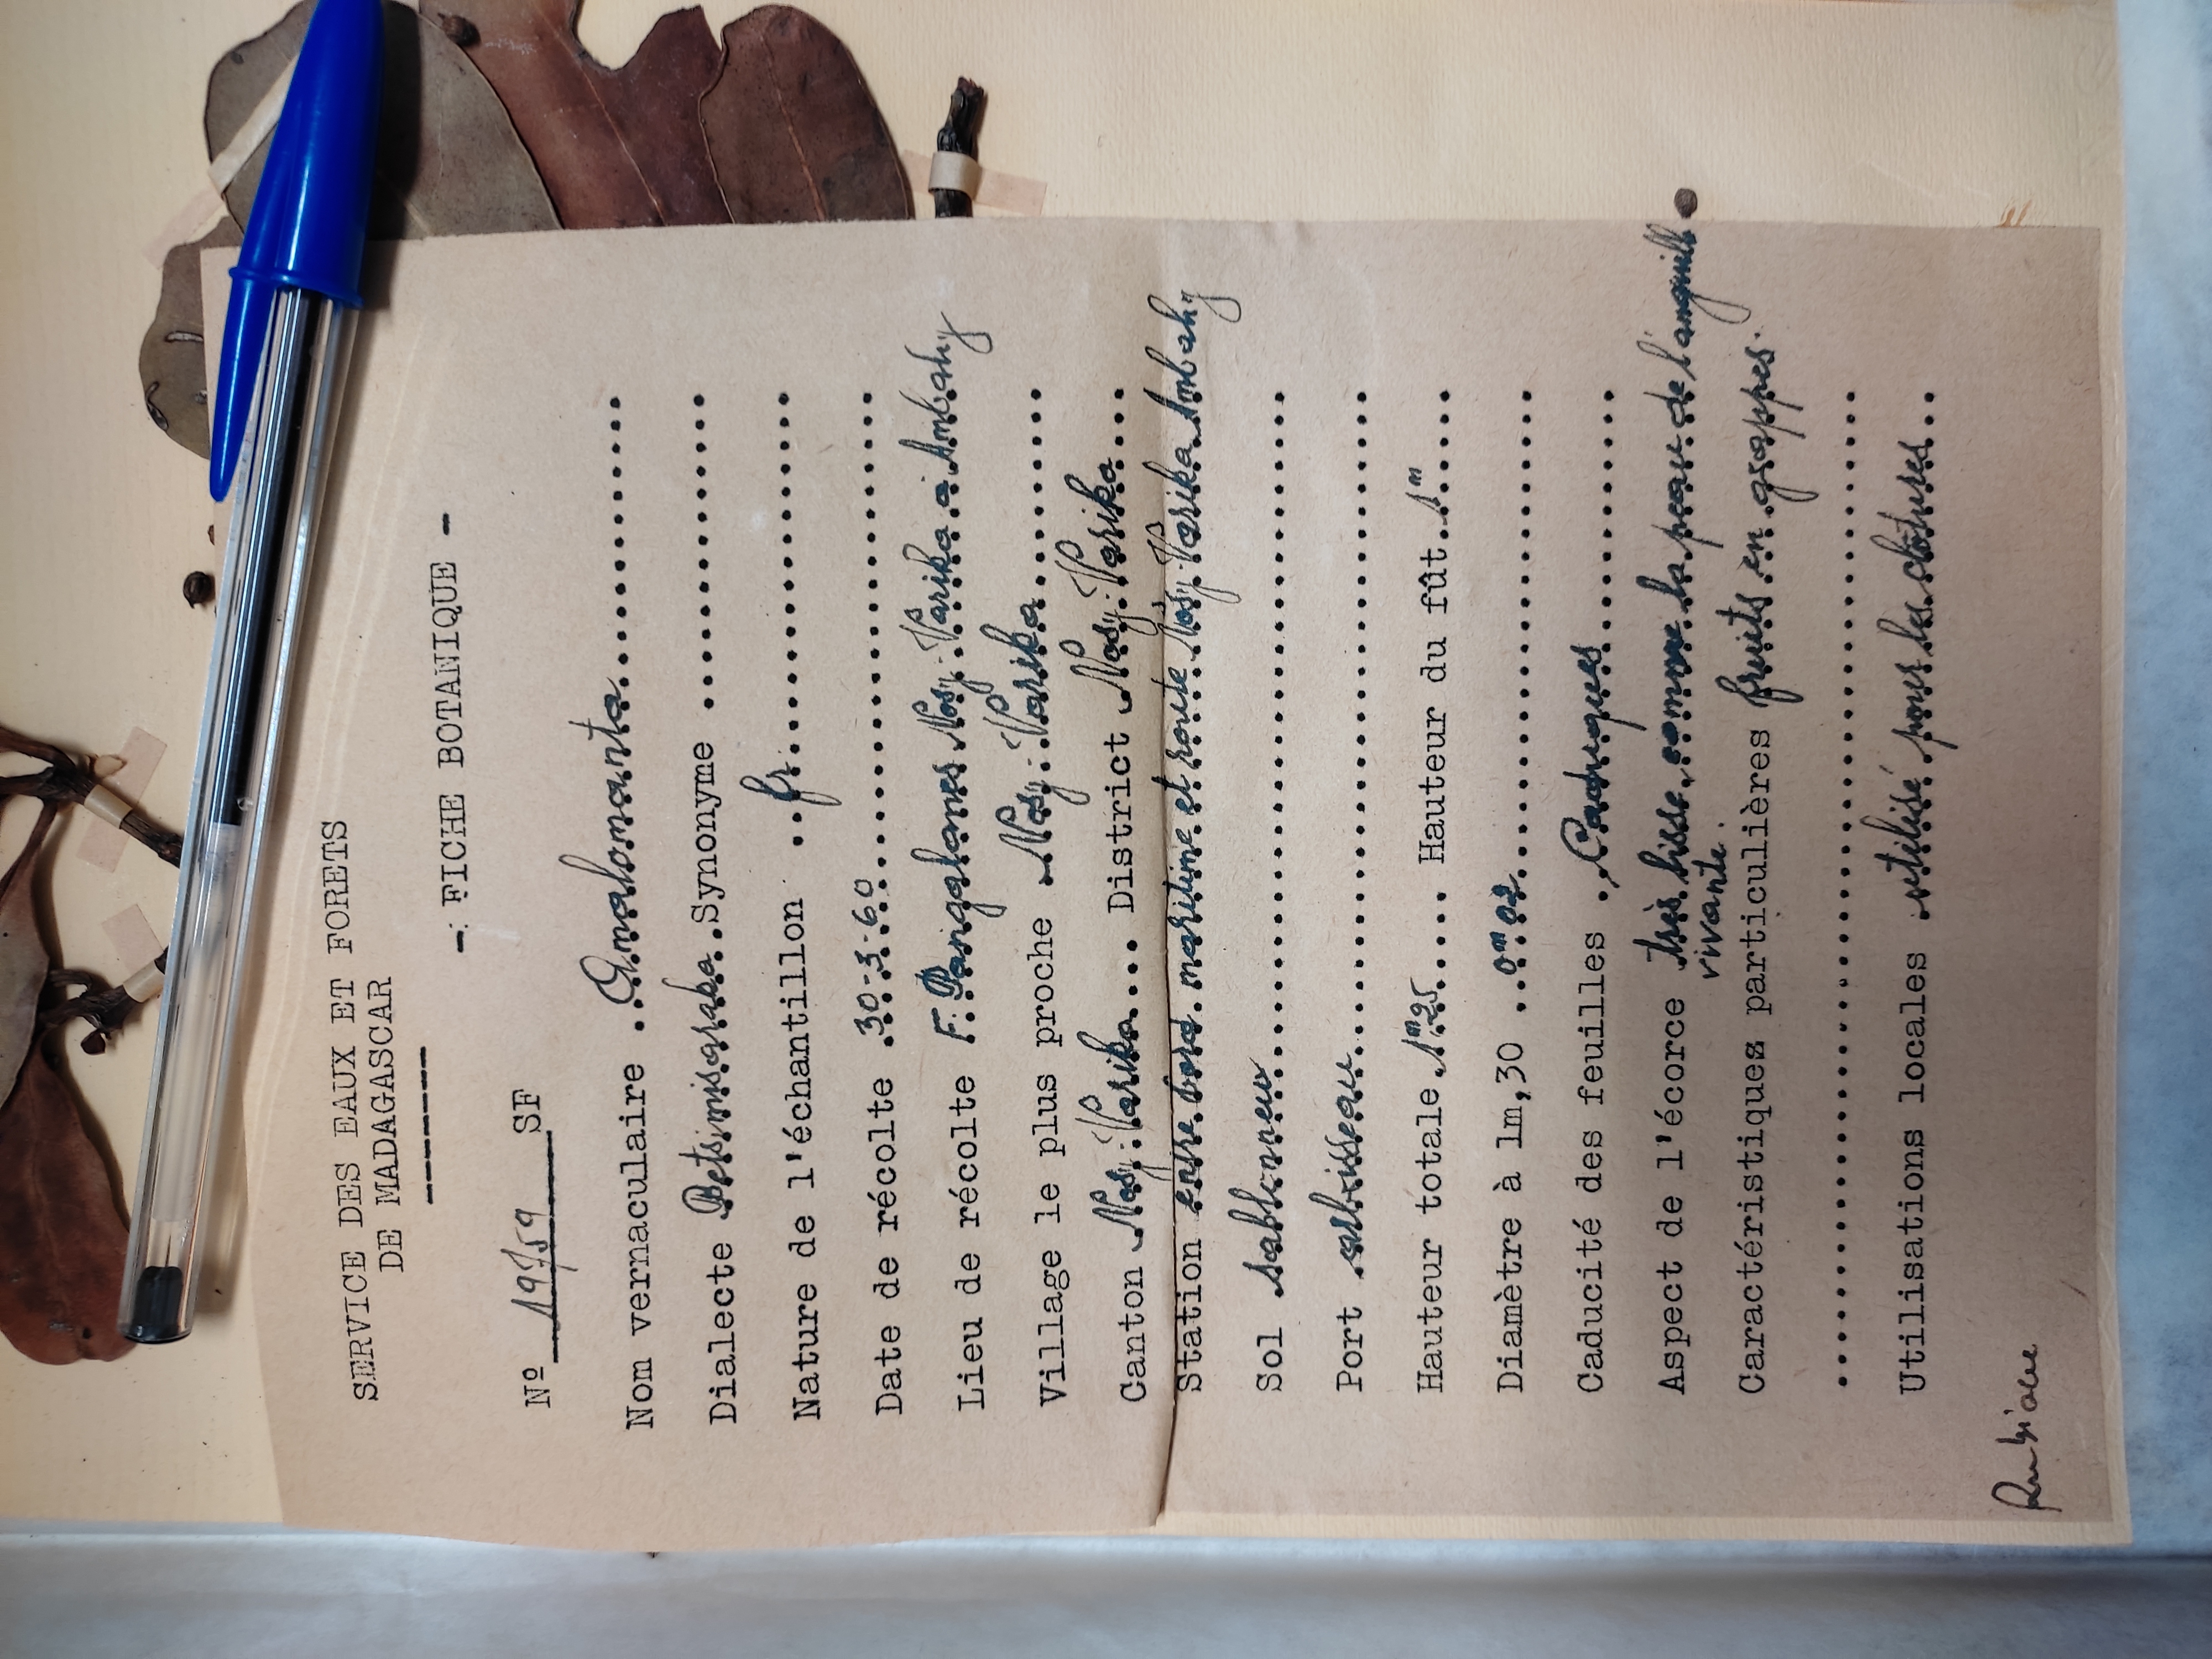 SERVICE DES EAUX ET FORETS
DE MADAGASCAR
-: FICHE BOTANIQUE -
Nº 19759 SF
Nom vernaculaire Amalomanta
Dialecte Betsimisaraka Synonyme
Nature de l'échantillon fr
Date de récolte 30-3-60
Lieu de récolte F. Pangalanes Nosy-Varika à Ambahy
Village le plus proche Nosy-Varika
Canton Nosy-Varika District Nosy-Varika
Station entre bord maritime et route Nosy-Varika Ambahy
Sol sablonneux
Port arbrisseau
Hauteur totale 1m25 Hauteur du fût 1m
Diamètre à 1m,30 0m02
Caducité des feuilles Caduques
Aspect de l'écorce très lisse, comme la peau de l'anguille
vivante.
Caractéristiques particulières fruits en grappes.
Utilisations locales utilisé pour les clôtures